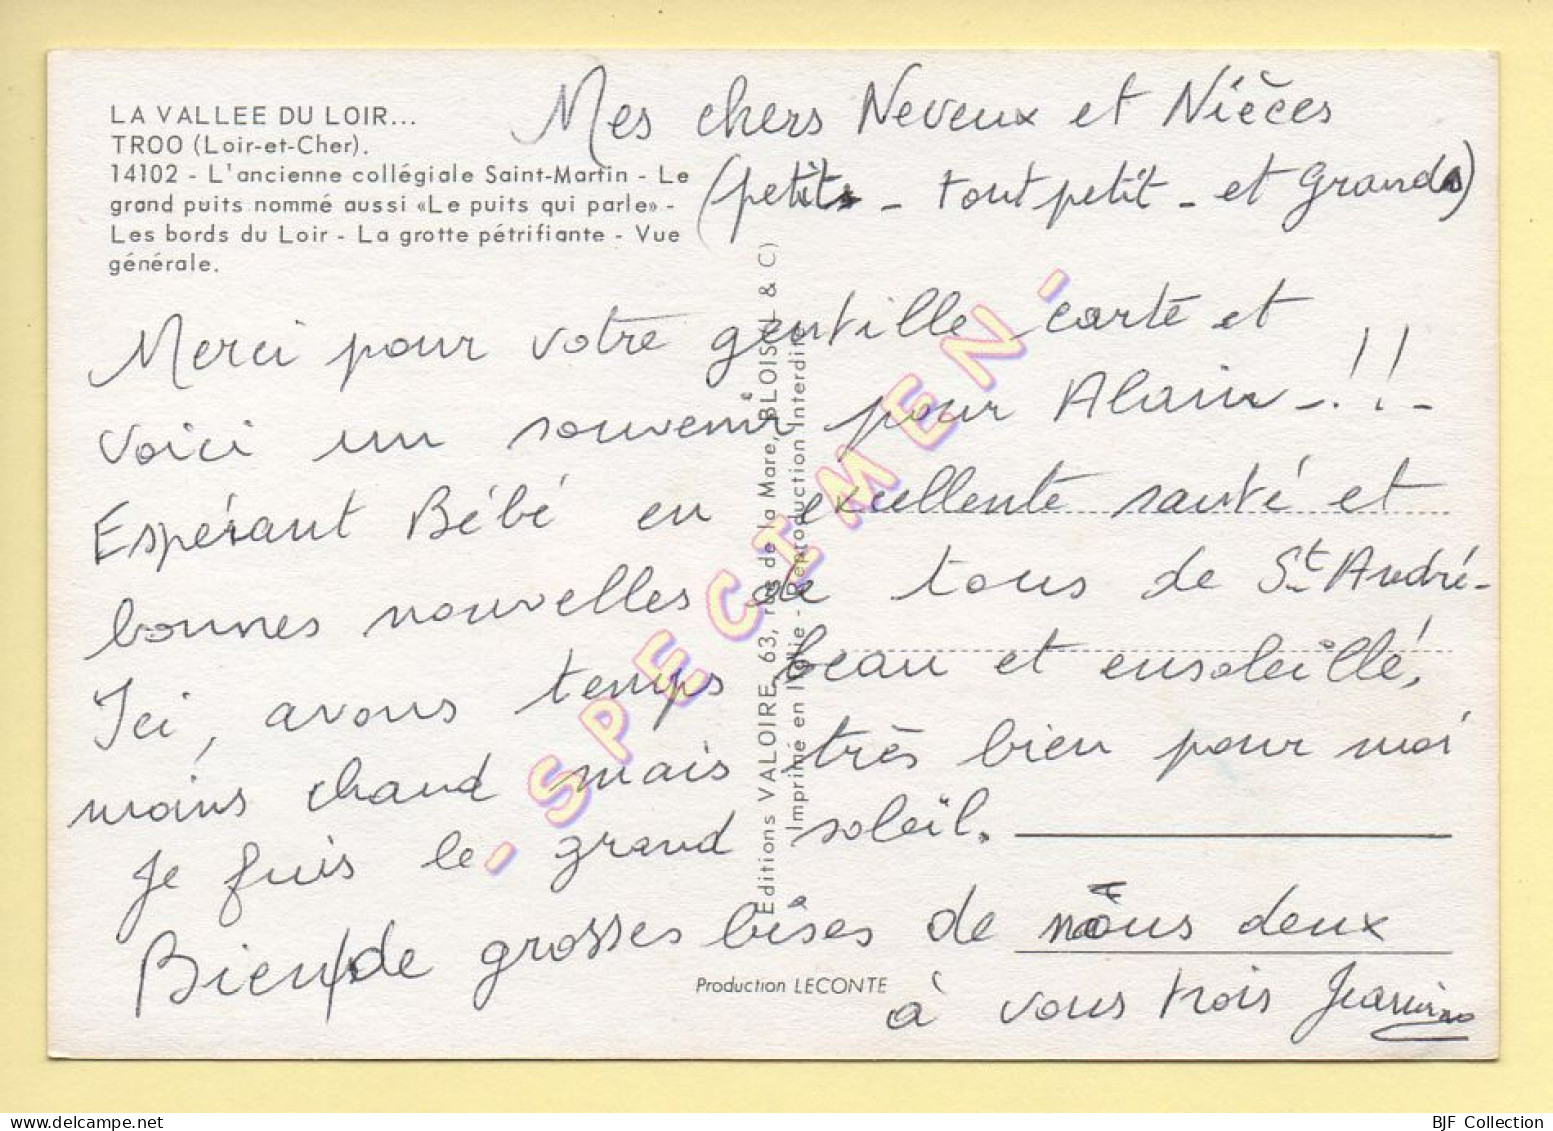 LA VALLEE DU LOIR...
TROO (Loir-et-Cher).
14102 - L'ancienne collégiale Saint-Martin - Le
grand puits nommé aussi «Le puits qui parle» -
Les bords du Loir - La grotte pétrifiante - Vue
générale.
Mes chers Neveux et Nièces
(petits - tout petit - et Grands)
Merci pour votre gentille carte et
voici un souvenir pour Alain - !! -
Espérant Bébé en excellente santé et
bonnes nouvelles de tous de St André -
Ici, avons temps beau et ensoleillé,
moins chaud mais très bien pour moi
Je fuis le grand soleil.
Bien de grosses bises de nous deux
à vous trois Jeannine
Editions VALOIRE, 63, rue de la Mare, BLOIS (L & C)
Imprimé en Italie - Reproduction Interdite
Production LECONTE
- SPECIMEN -
BJF Collection